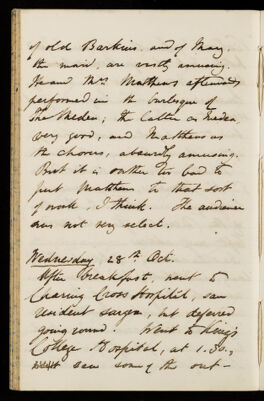 of old Barkins, and of Mary,
the maid, are vastly amusing.
He and Mrs Matthews afterwards
performed in the burlesque of
The Medea; the latter as Medea,
very good, and Matthews as
the chorus, absurdly amusing.
But it is rather too bad to
put Matthews to that sort
of work, I think. The audience
was not very select.
Wednesday, 28th Oct.
After breakfast, went to
Charing Cross Hospital, saw
resident surgeon, but deferred
going round. Went to King's
College Hospital, at 1.30,
saw some of the out-